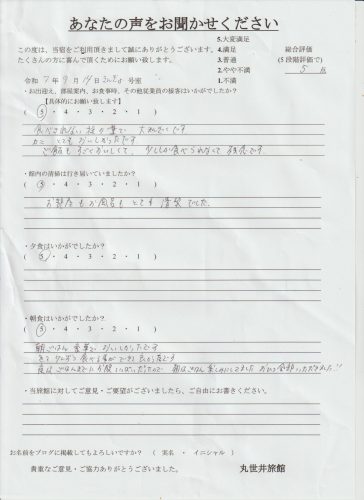 あなたの声をお聞かせください
この度は、当宿をご利用頂きまして誠にありがとうございます。
たくさんの方に喜んで頂くためにお願い致します。
5.大変満足
4.満足
3.普通
2.やや不満
1.不満
総合評価
(5段階評価で)
5 点
令和 7年 9月 14日 号室
・お出迎え、部屋案内、お食事時、その他従業員の接客はいかがでしたか?
( ⑤ ・ 4 ・ 3 ・ 2 ・ 1 )
【具体的にお願い致します】
食べきれない位の量で 大満足です
カニ とても おいしかったです
ご飯もすごくおいしくて、少ししか食べられなくて残念です
・館内の清掃は行き届いていましたか?
( ⑤ ・ 4 ・ 3 ・ 2 ・ 1 )
お部屋もお風呂もとても清潔でした。
・夕食はいかがでしたか?
( ⑤ ・ 4 ・ 3 ・ 2 ・ 1 )
・朝食はいかがでしたか?
( ⑤ ・ 4 ・ 3 ・ 2 ・ 1 )
朝ごはん おいしかったです
・当旅館に対してご意見・ご要望がございましたら、ご自由にお書きください。
お名前をブログに掲載してもよろしいですか? ( 実名 ・ イニシャル )
貴重なご意見・ご協力ありがとうございました。
丸世井旅館